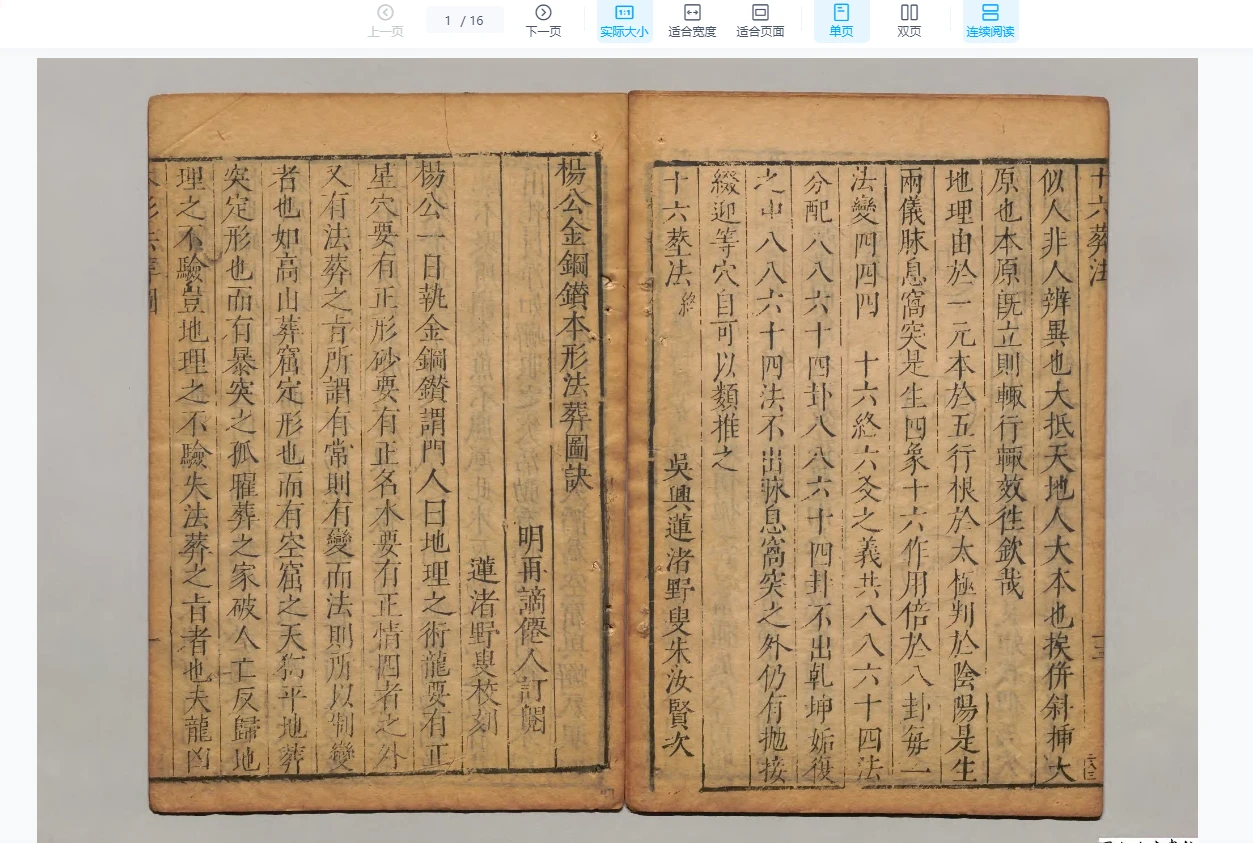 上一页
1 / 16
下一页
1:1
实际大小
适合宽度
适合页面
单页
双页
连续阅读
十六葬法
似人非人辨異也大抵天地人大本也挨倂斜揷大
原也本原既立則輙行輙效徃欽哉
地理由於一元本於五行根於太極判於陰陽是生
兩儀脉息窩突是生四象十六作用倍於八卦每一
法變四四四 十六終六爻之義共八八六十四法
分配八八六十四卦八八六十四卦不出乾坤姤復
之中八八六十四法不出脉息窩突之外仍有抛接
綴迎等穴自可以類推之
吳興蓮渚野叟朱汝賢次
十六葬法 終
楊公金鋼鑚本形法葬圖訣
明再謫僊人訂閱
蓮渚野叟校刻
楊公一日執金鋼鑚謂門人曰地理之術龍要有正
星穴要有正形砂要有正名水要有正情四者之外
又有法葬之肯所謂有常則有變而法則所以制變
者也如高山葬窩定形也而有空窟之天狗平地葬
突定形也而有暴突之孤曜葬之家破人亡反歸地
理之不驗豈地理之不驗失法葬之肯者也夫龍凶